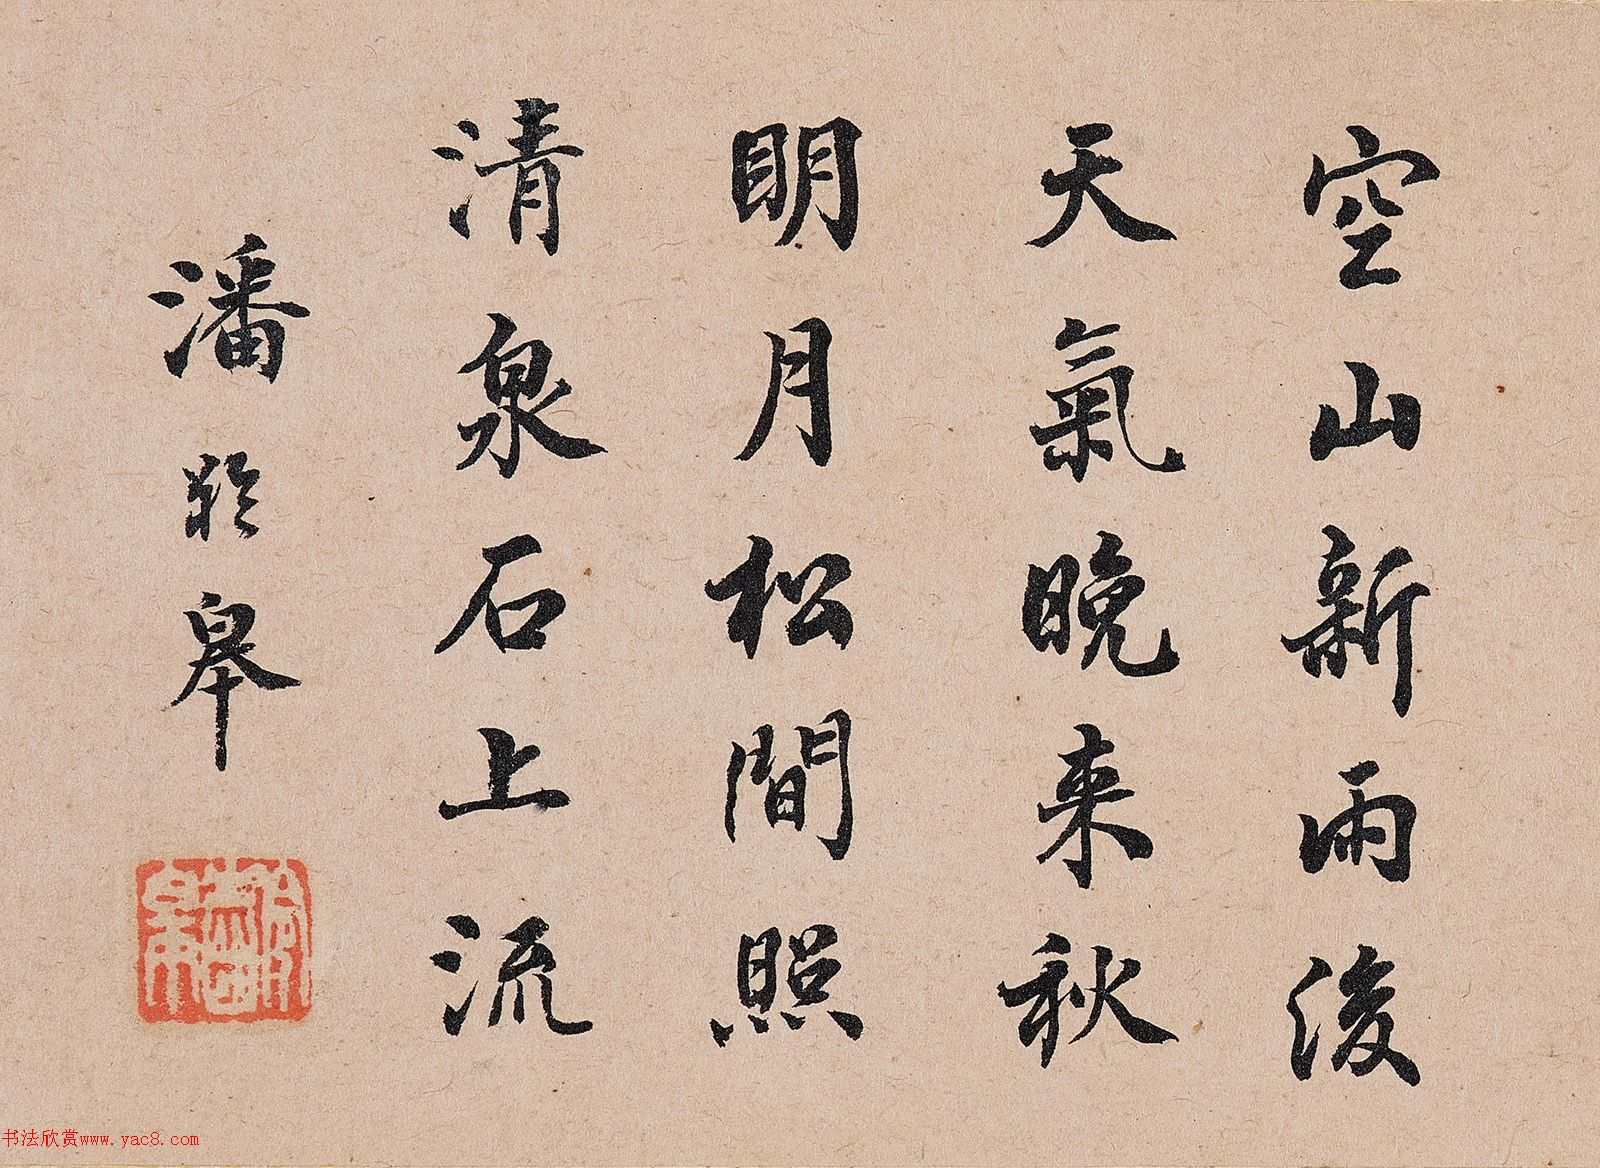 空山新雨後
天氣晚来秋
明月松間照
清泉石上流
潘齡皋
书法欣赏www.yac8.com